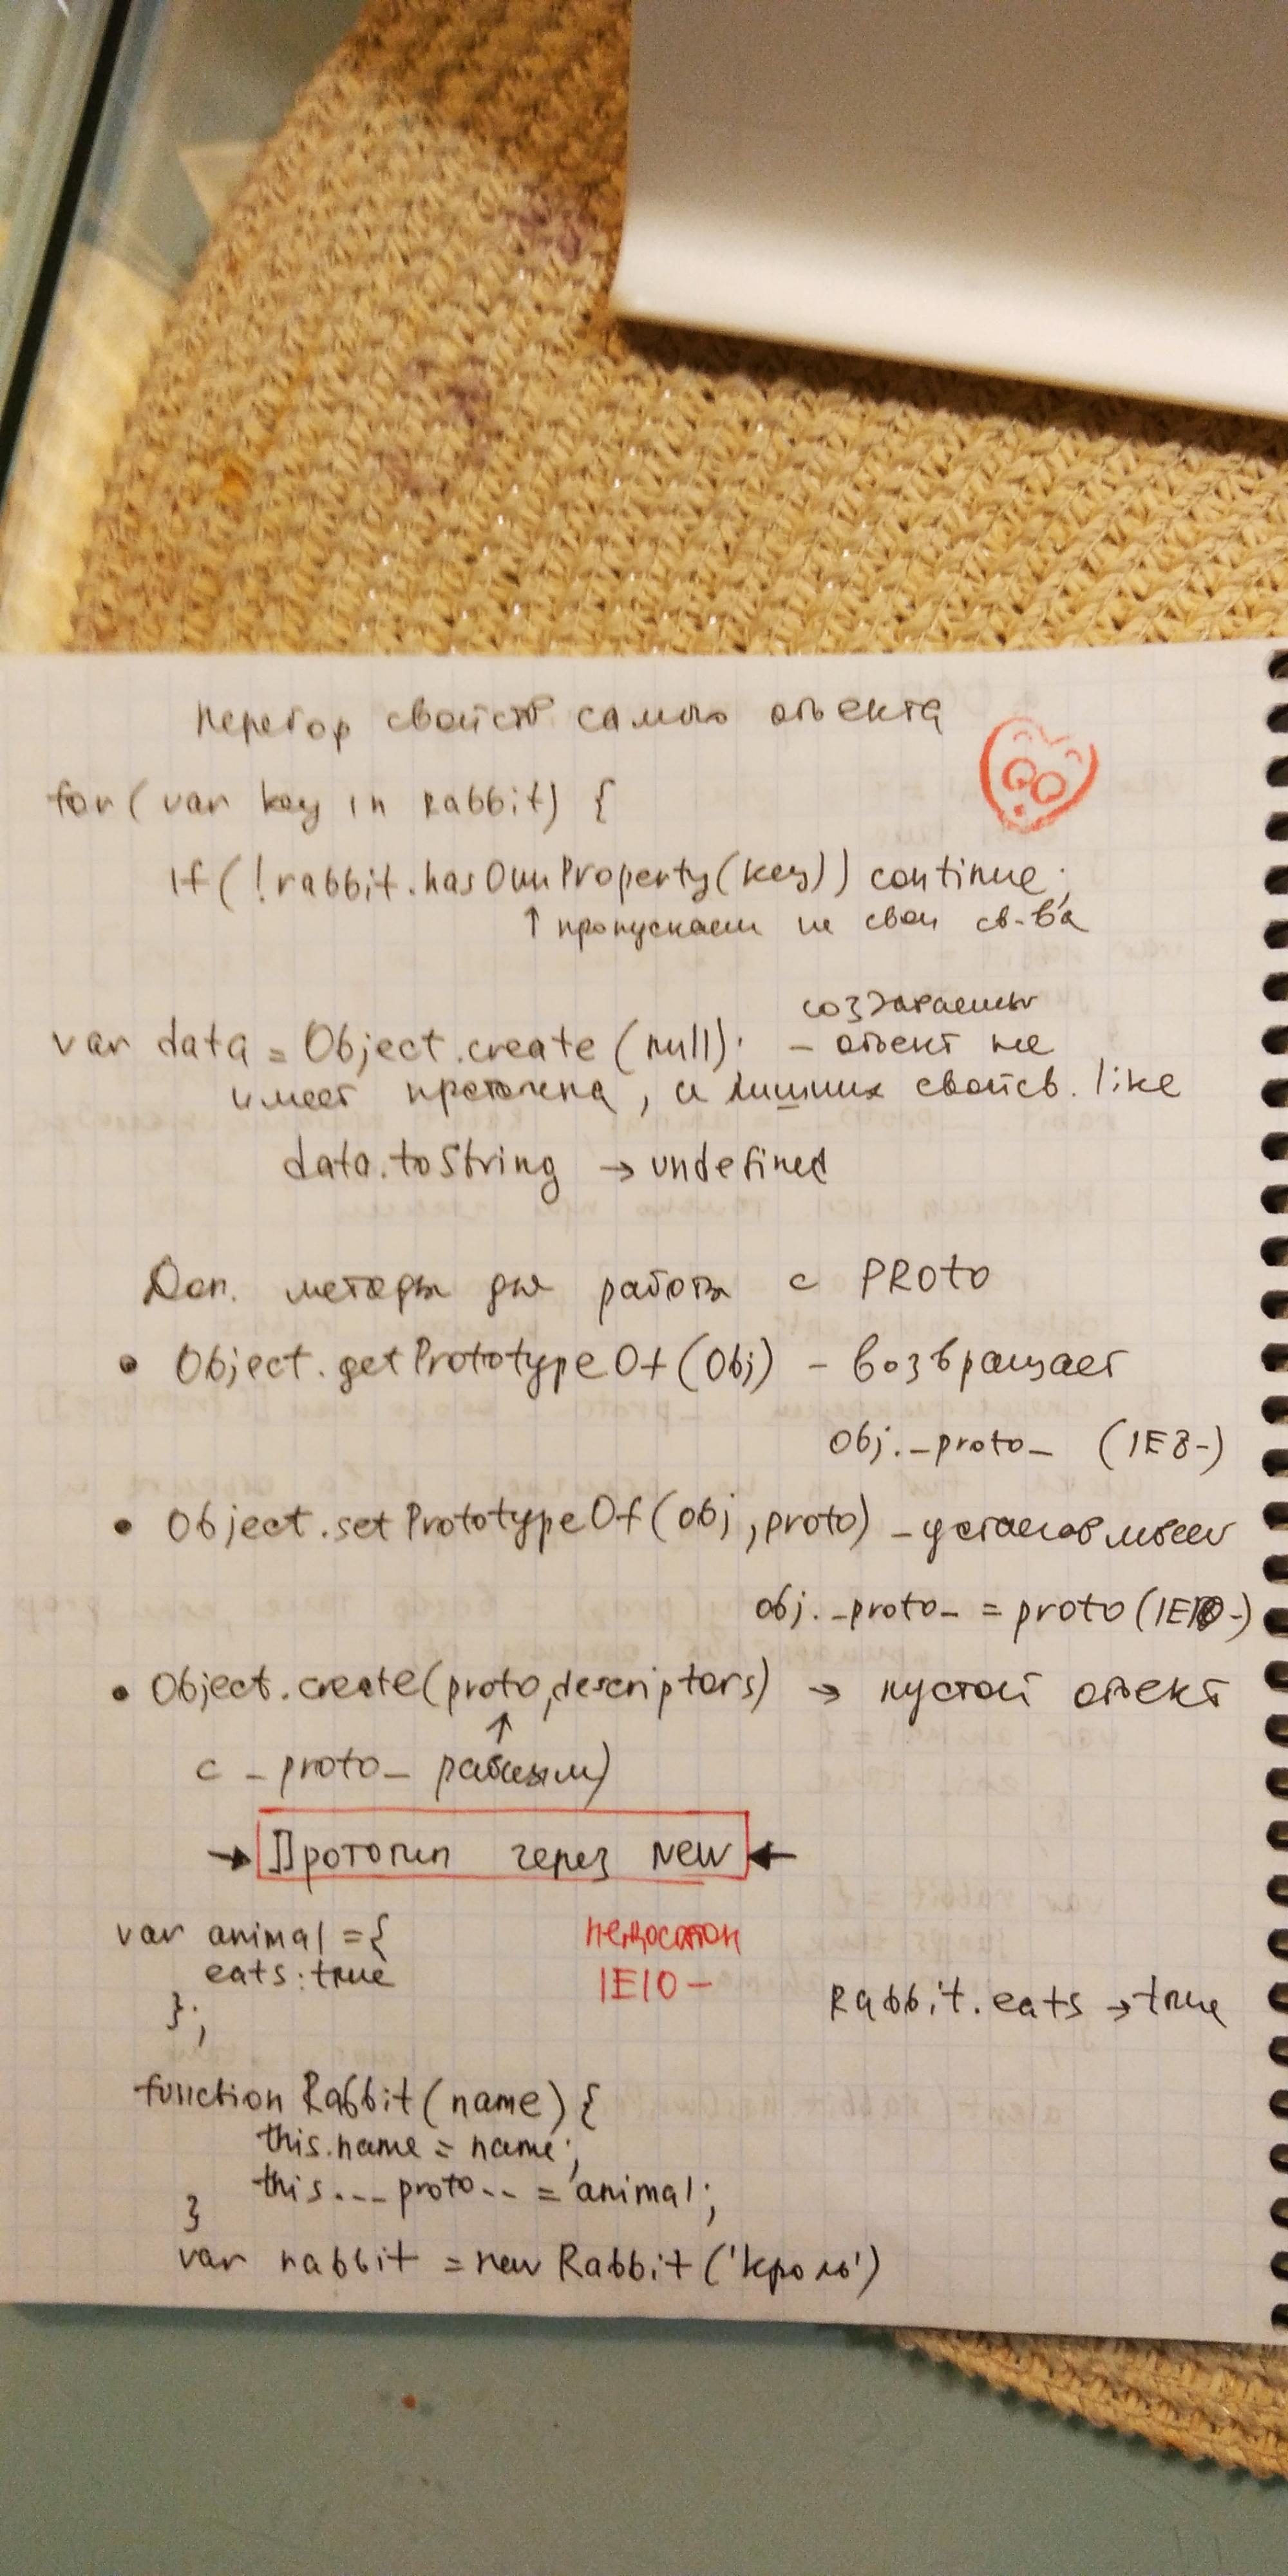 Перебор свойств самого объекта
for (var key in Rabbit) {
if (!rabbit.hasOwnProperty(key)) continue;
↑ пропускаем не свои св-ва
var data = Object.create(null); - создаваемый
объект не
имеет прототипа, и лишних свойсв. like
data.toString → undefined
Доп. методы для работы с PROTO
• Object.getPrototypeOf(Obj) - возвращает
Obj._proto_ (IE8-)
• Object.setPrototypeOf(obj, proto) - устанавливает
obj._proto_ = proto (IE10-)
• Object.create(proto, descriptors) → пустой объект
↑
с _proto_
→ Прототип через NEW ←
var animal = {
eats: true
};
недостаток
IE10-
Rabbit.eats → true
function Rabbit(name) {
this.name = name;
this.__proto__ = animal;
}
var rabbit = new Rabbit('кроль')